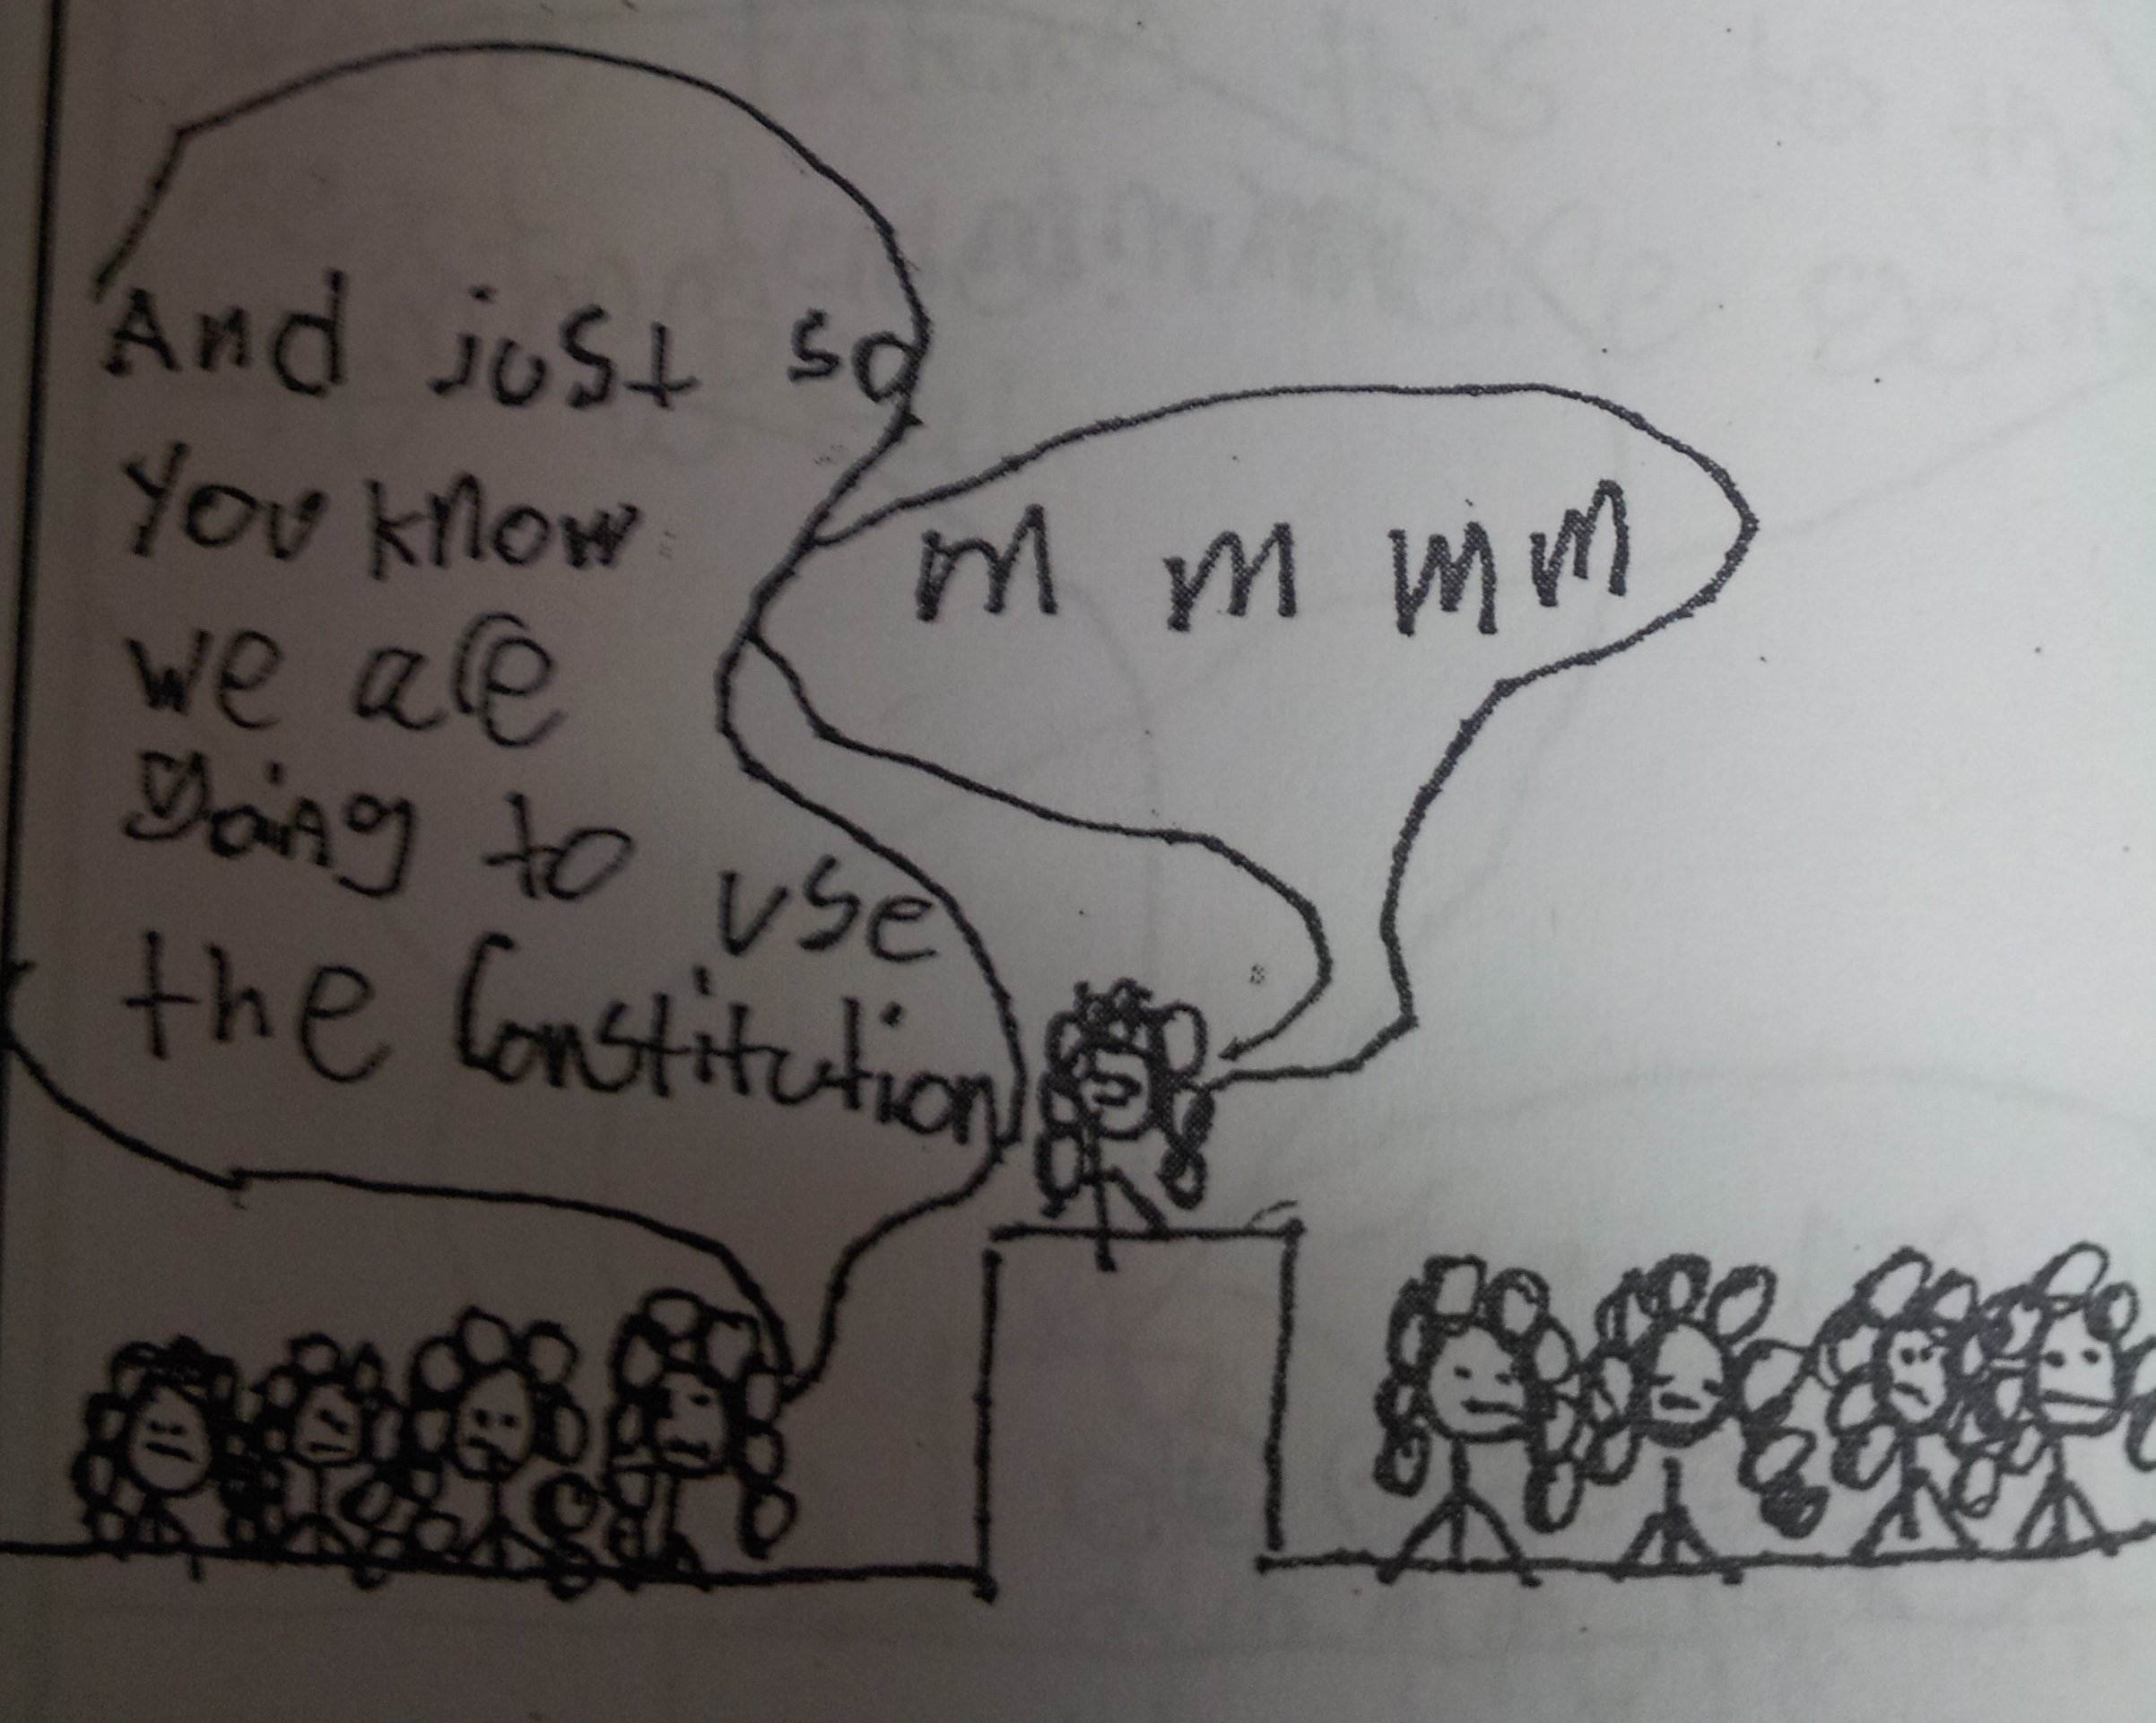 And just so
you know
we are
going to use
the Constitution
m m m m